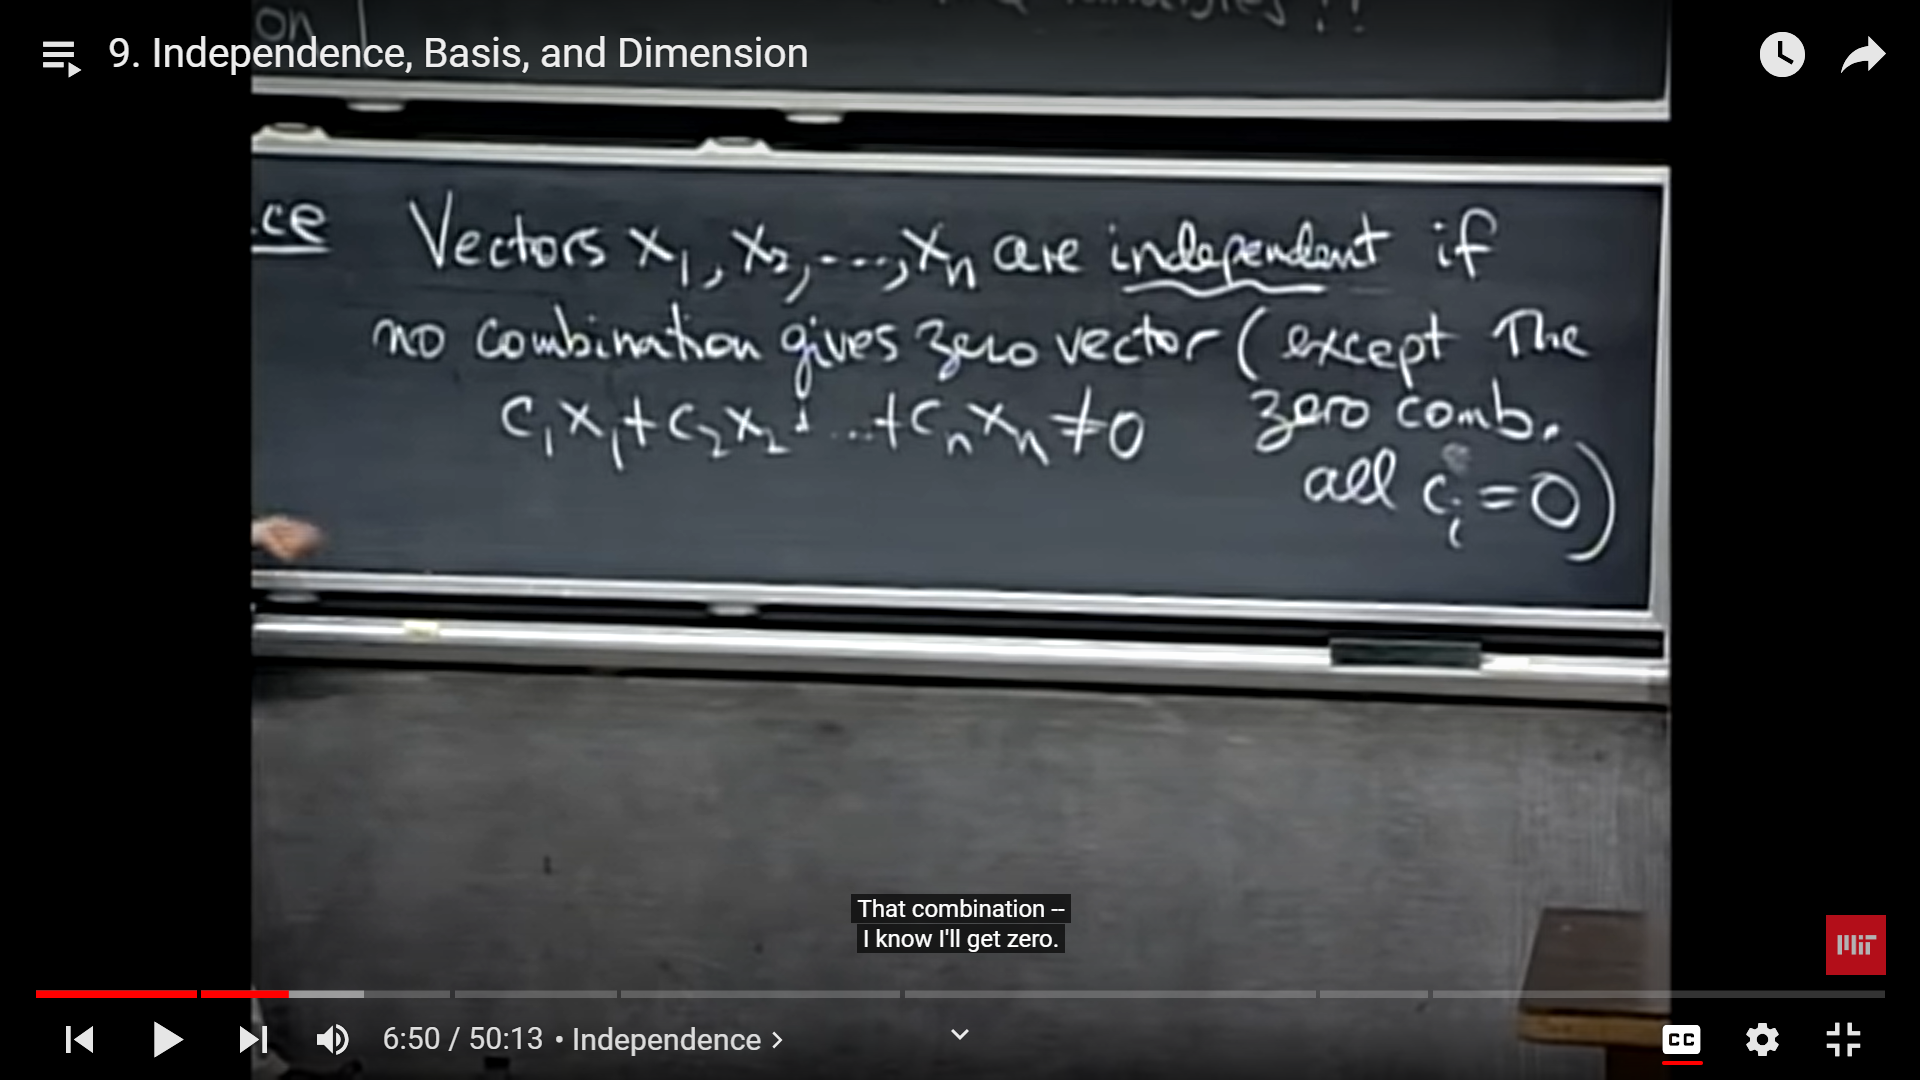 on
9. Independence, Basis, and Dimension
ce Vectors x₁, x₂, ..., xₙ are independent if
no combination gives zero vector (except The
c₁x₁+c₂x₂+...+cₙxₙ≠0 zero comb.
all cᵢ=0)
That combination --
I know I'll get zero.
MIT
6:50 / 50:13 • Independence >
CC